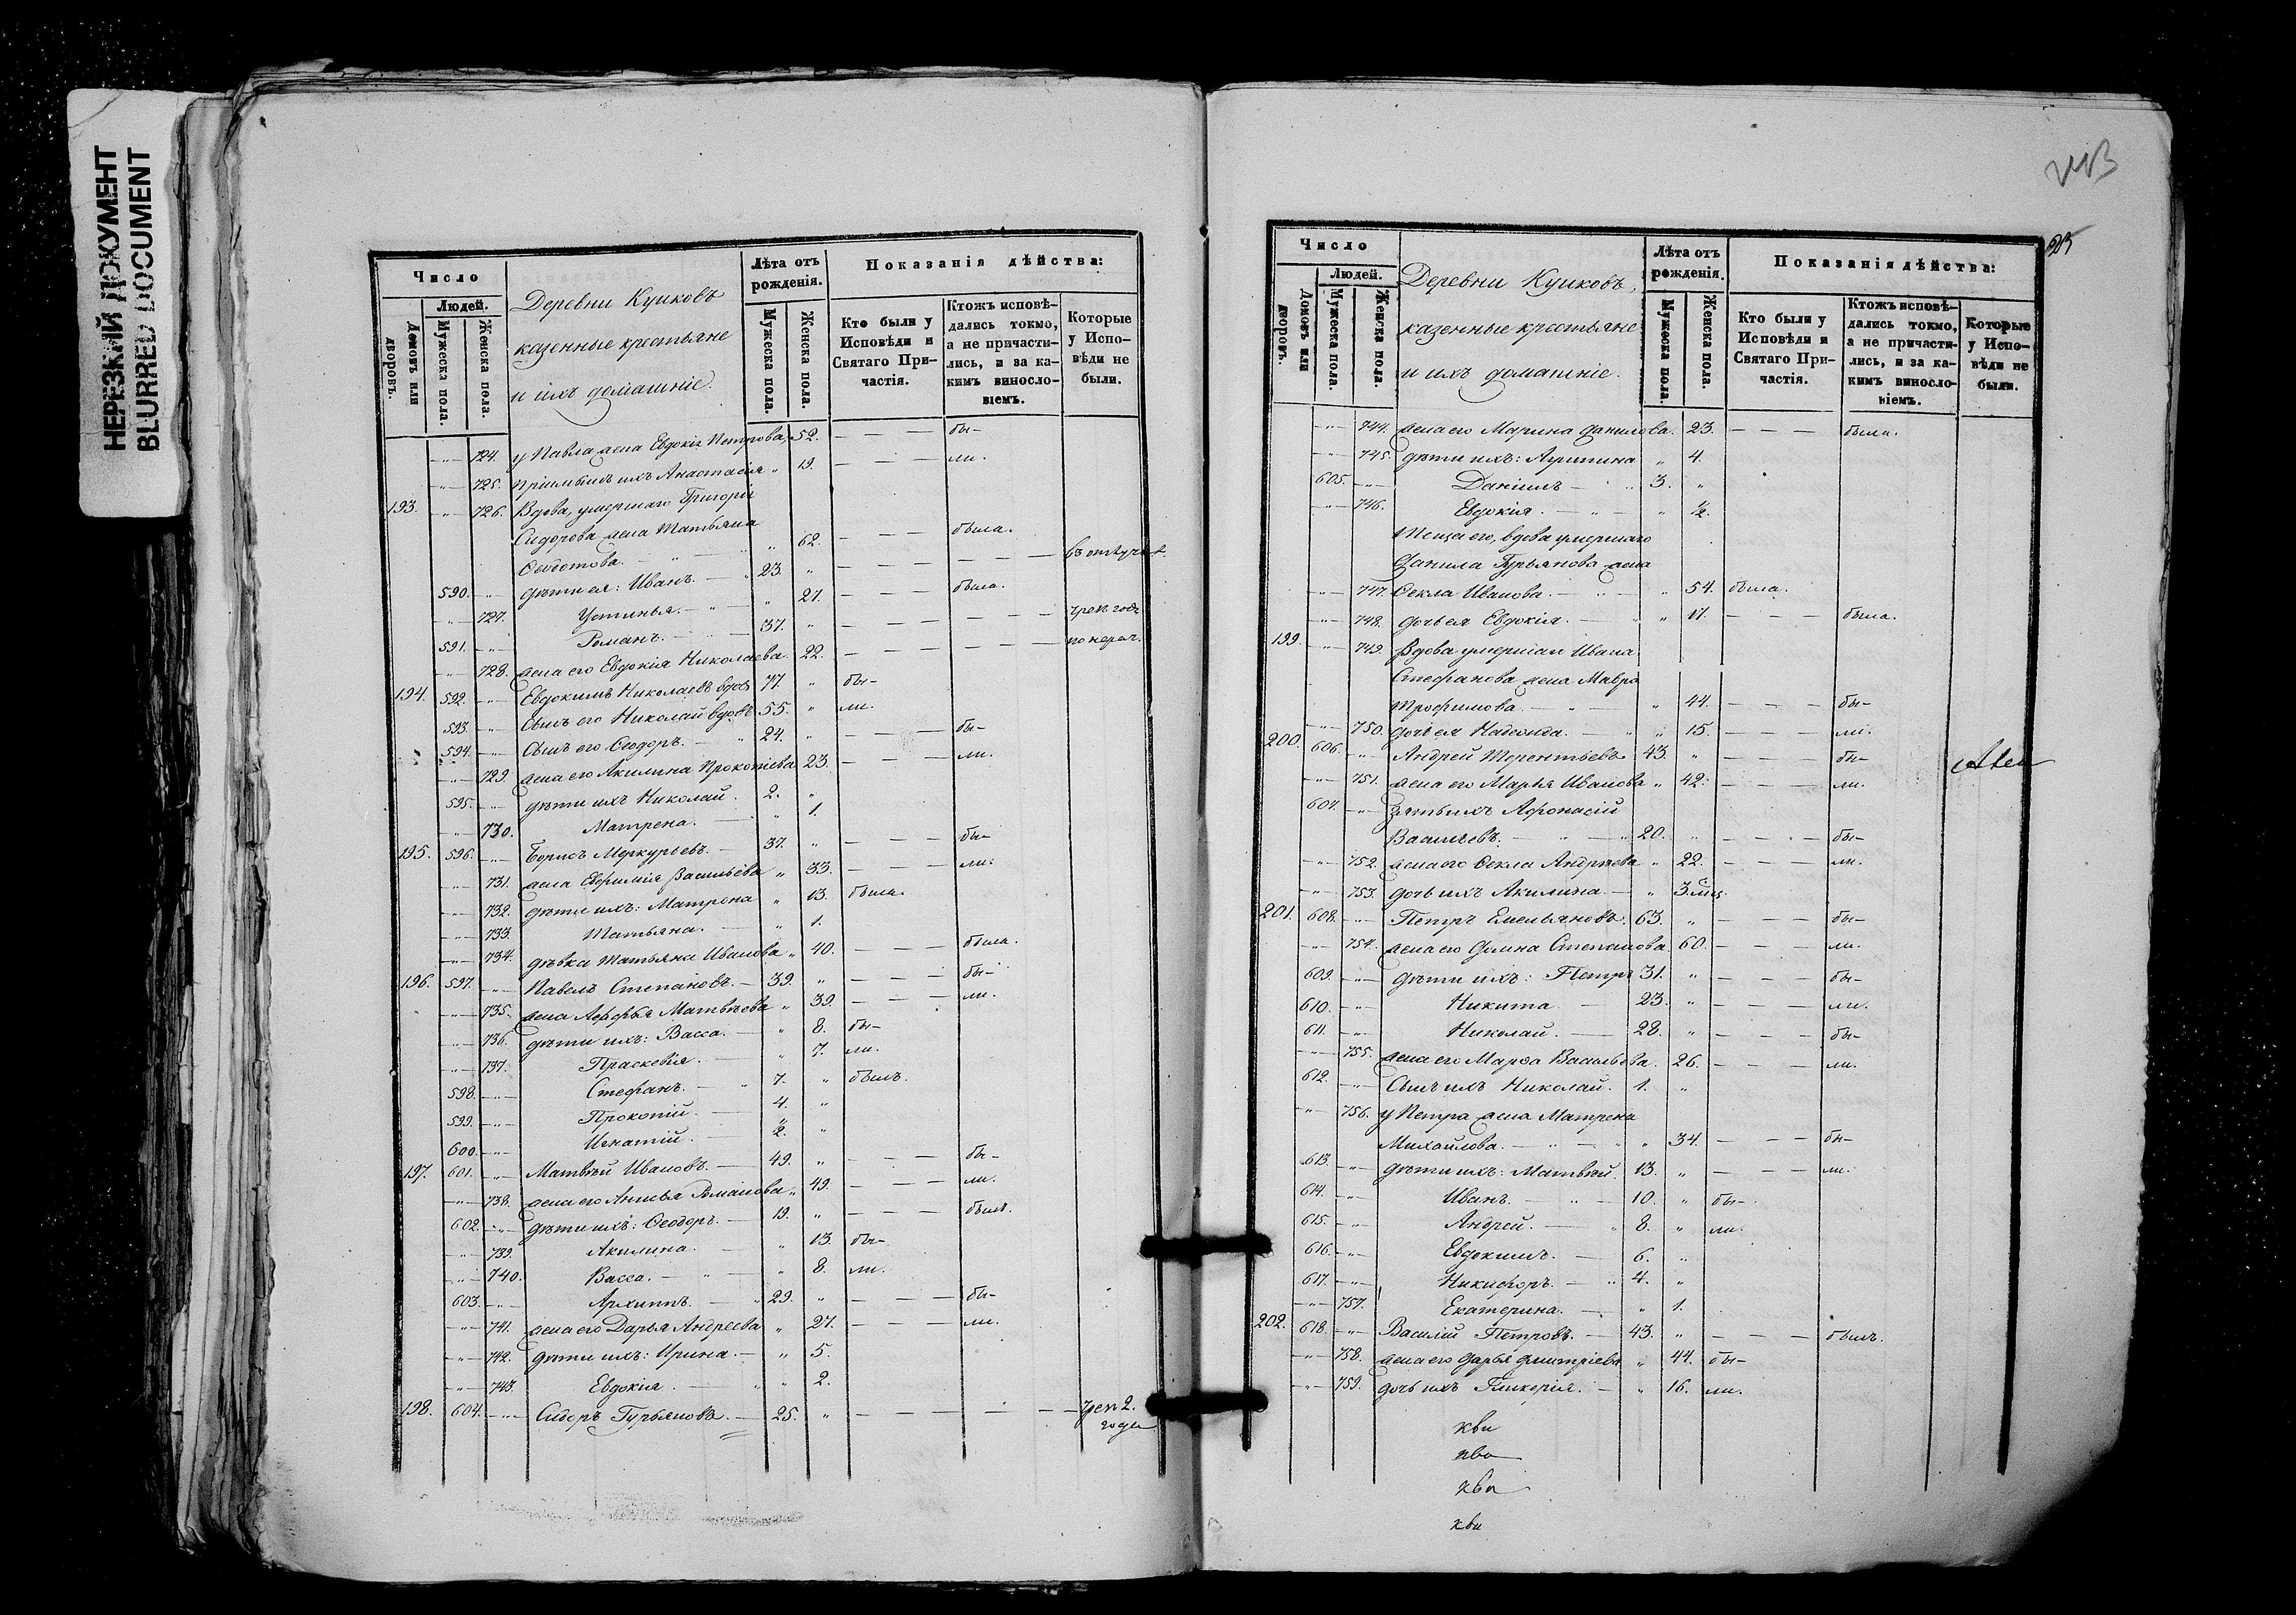 НЕРЕЗКИЙ ДОКУМЕНТ
BLURRED DOCUMENT
Число
Людей.
Домовъ или дворовъ.
Мужеска пола.
Женска пола.
Деревни Куиковъ
казенные крестьяне
и ихъ домашніе.
Лѣта отъ рожденія.
Мужеска пола.
Женска пола.
Показанія дѣйства:
Кто были у Исповѣди и Святаго Причастія.
Ктожъ исповѣ-
дались токмо,
а не причасти-
лись, и за ка-
кимъ винослo-
віемъ.
Которые
у Испо-
вѣди не
были.
-"- 724. у Павла жена Евдокія Петрова 52. — — — бы-
-"- 725. пріемышъ ихъ Анастасія " 19. — — — ли.
193. -"- 726. Вдова, умершаго Григорія
Сидорова жена Татьяна
" 62. — — — была.
590. -"- дѣти ея: Иванъ. — 23. " — — — въ отлуч.
-"- 727. Устинья. — " 21. — — — была.
591. -"- Романъ. — 37. " — — —
-"- 728. жена его Евдокія Николаева. 22. — — — по нерач.
194. 592. -"- Евдокимъ Николаевъ вдовъ 77. " бы-
593. -"- сынъ его Николай вдовъ 55. " ли.
594. -"- сынъ его Ѳеодоръ. — 24. " — — — бы-
-"- 729. жена его Акилина Прокопіева 23. — — — ли.
595. -"- дѣти ихъ Николай. 2. "
-"- 730. Матрена. — " 1.
195. 596. -"- Борисъ Меркурьевъ. — 37. " — — — бы-
-"- 731. жена Евфимія Васильева " 33. — — — ли.
-"- 732. дѣти ихъ: Матрона " 13. была.
-"- 733. Татьяна. — " 1.
-"- 734. дѣвка Татьяна Иванова " 40. — — — была.
196. 597. -"- Павелъ Степановъ. — 39. " — — — бы-
-"- 735. жена Матвѣева " 39. — — — ли.
-"- 736. дѣти ихъ: Васса. — " 8. бы-
-"- 737. Праскевія. — " 7. ли.
598. -"- Стефанъ. — 7. " былъ.
599. -"- Прокопій. — 4. "
600. -"- Игнатій. — 2. "
197. 601. -"- Матвѣй Ивановъ. — 49. " — — — бы-
-"- 738. жена его Анисья Романова " 49. — — — ли.
602. -"- дѣти ихъ: Ѳеодоръ. — 19. " — — — былъ.
-"- 739. Акилина. — " 13. бы-
-"- 740. Васса. — " 8. ли.
603. -"- Архиппъ. — 29. " — — — бы-
-"- 741. жена его Дарья Андреева " 27. — — — ли.
-"- 742. дѣти ихъ: Ирина. — " 5.
-"- 743. Евдокія. — " 2.
198. 604. -"- Сидоръ Гурьяновъ. — 25. " — — — — 2.
года
23
Число
Людей.
Домовъ или дворовъ.
Мужеска пола.
Женска пола.
Деревни Куиковъ,
казенные крестьяне
и ихъ домашніе.
Лѣта отъ рожденія.
Мужеска пола.
Женска пола.
Показанія дѣйства:
Кто были у Исповѣди и Святаго Причастія.
Ктожъ исповѣ-
дались токмо,
а не причасти-
лись, и за ка-
кимъ винослo-
віемъ.
Которые
у Испо-
вѣди не
были.
-"- 744. жена его Марина Данилова. 23. — — — была.
-"- 745. дѣти ихъ: " 4.
605. -"- Даніилъ — 3. "
-"- 746. Евдокія. — " ½.
Теща его, вдова умершаго
Данила Гурьянова жена
-"- 747. Ѳекла Иванова. — " 54. была.
-"- 748. дочь ея Евдокія. — " 17. — — — была.
199. -"- 749. Вдова умершаго Ивана
Стефанова жена Мавра
Трофимова. — " 44. — — — бы-
-"- 750. дочь ея Надежда. — " 15. — — — ли.
200. 606. -"- Андрей Терентьевъ 43. " — — — бы-
-"- 751. жена его Марья Иванова " 42. — — — ли.
607. -"- зять ихъ Афонасій
Васильевъ. — 20. " — — — бы-
-"- 752. жена его Ѳекла Андреева " 22. — — — ли.
-"- 753. дочь ихъ Акилина. — " 3. мѣц
201. 608. -"- Петръ Емельяновъ. 63. " — — — бы-
-"- 754. жена его Домна Степанова 60. — — — ли.
609. -"- дѣти ихъ: Петръ 31. " — — — бы-
610. -"- Никита — 23. " — — — ли.
611. -"- Николай. — 28. " — — — бы-
-"- 755. жена его Марѳа Васильева. 26. — — — ли.
612. -"- сынъ ихъ Николай. 1. "
-"- 756. у Петра жена Матрена
Михайлова. — " 34. — — — бы-
613. -"- дѣти ихъ: Матвѣй. 13. " — — — ли.
614. -"- Иванъ. — 10. " бы-
615. -"- Андрей. — 8. " ли.
616. -"- Евдокимъ. — 6. "
617. -"- Никифоръ. — 4. "
-"- 757. Екатерина. — " 1.
202. 618. -"- Василій Петровъ. — 43. " — — — былъ.
-"- 758. жена его Дарья Дмитріева " 44. бы-
-"- 759. дочь ихъ Гликерія. — " 16. ли.